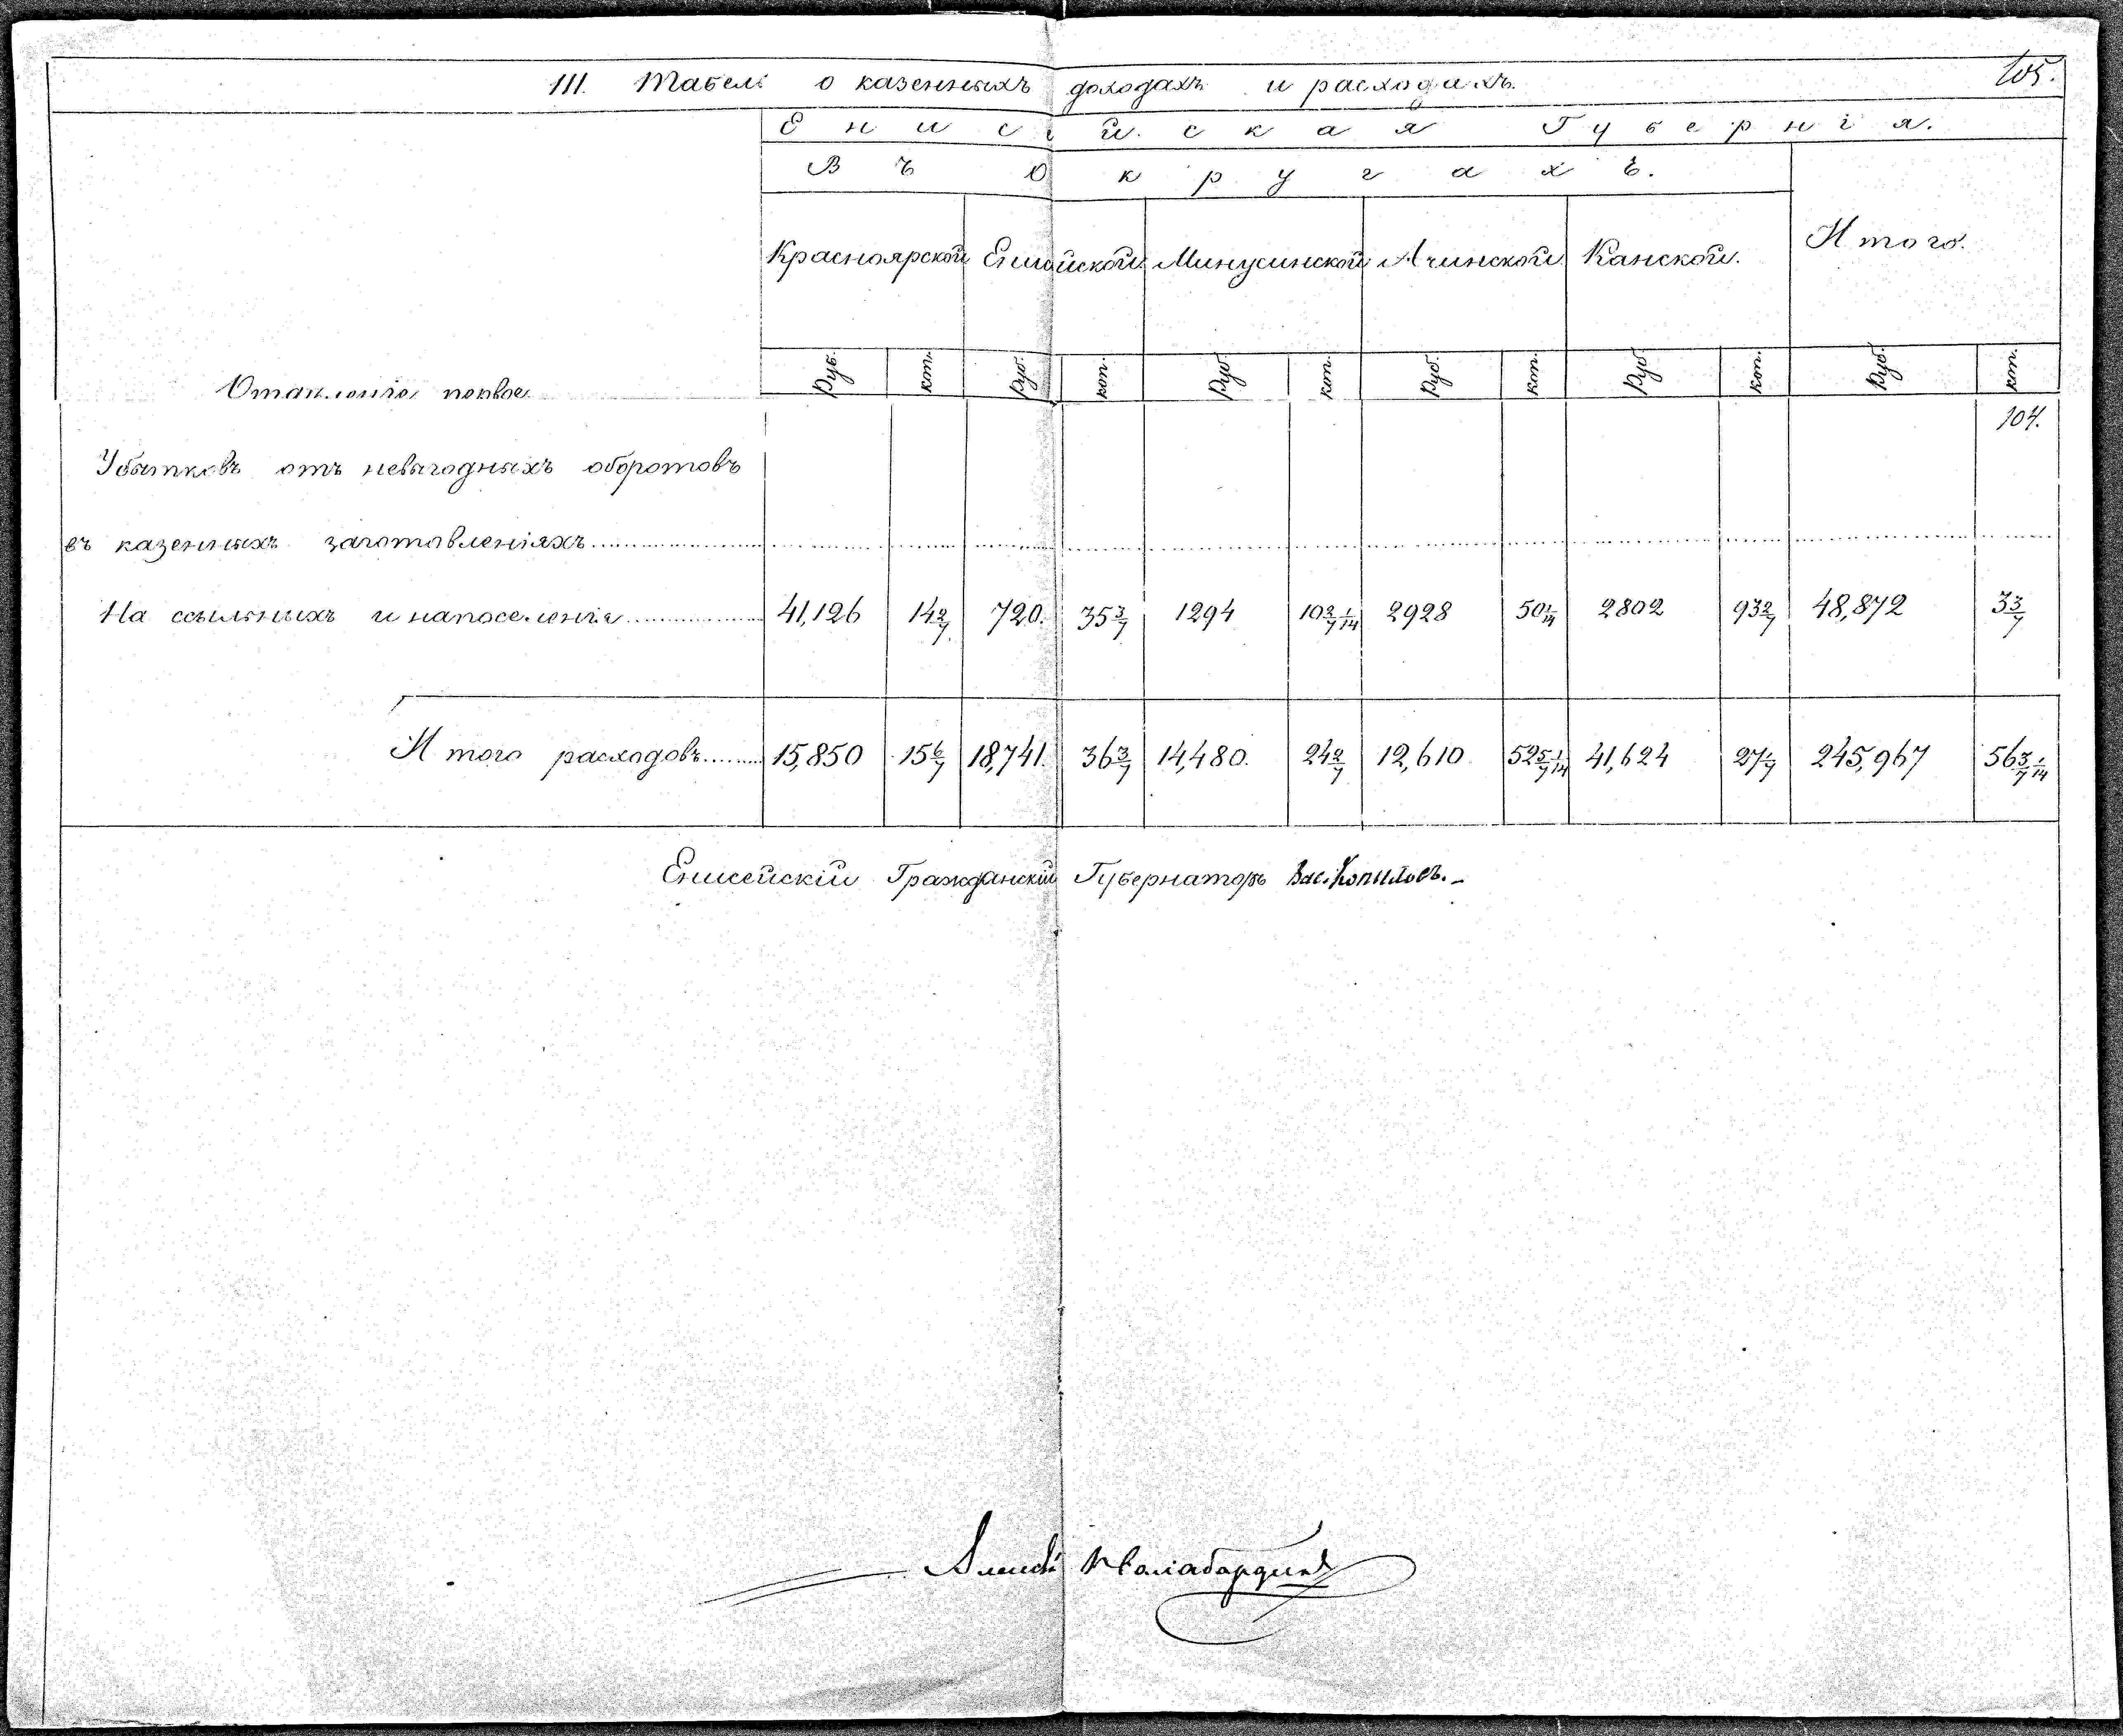 105.
III. Табель о казенныхъ доходахъ и расходахъ.
Енисейская Губернія.
Въ Округахъ.
Красноярской Енисейской Минусинской Ачинской Канской. Итого.
Руб. коп. Руб. коп. Руб. коп. Руб. коп. Руб. коп. Руб. коп.
104.
Убытковъ отъ невыгодныхъ оборотовъ
въ казенныхъ заготовленіяхъ
На ссыльныхъ и напоселенія 41,126 14 2/7 720. 35 3/7 1294 10 2/7 1/14 2928 50 1/14 2802 93 2/7 48,872 3 3/7
Итого расходовъ 15,850 15 6/7 18,741. 36 3/7 14,480. 24 2/7 12,610 52 5/7 1/14 41,624 27 1/7 245,967 56 3/7 1/14
Енисейскій Гражданскій Губернаторъ Вас. Копыловъ.